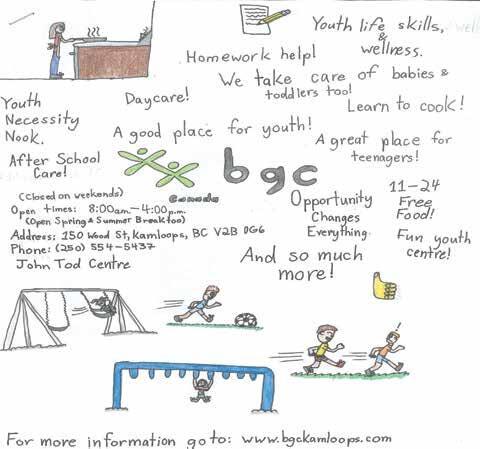 Youth life skills,
&
wellness.
Homework help!
We take care of babies &
toddlers too!
Youth
Necessity
Nook.
Daycare!
Learn to cook!
A good place for youth!
A great place for
teenagers!
After School
Care!
bgc
Canada
(Closed on weekends)
Open times: 8:00am.-4:00p.m.
(Open Spring & Summer Break too)
Address: 150 Wood St, Kamloops, BC V2B 0G6
Phone: (250) 554-5437
John Tod Centre
Opportunity
Changes
Everything.
11-24
Free
Food!
Fun youth
centre!
And so much
more!
For more information go to: www.bgckamloops.com